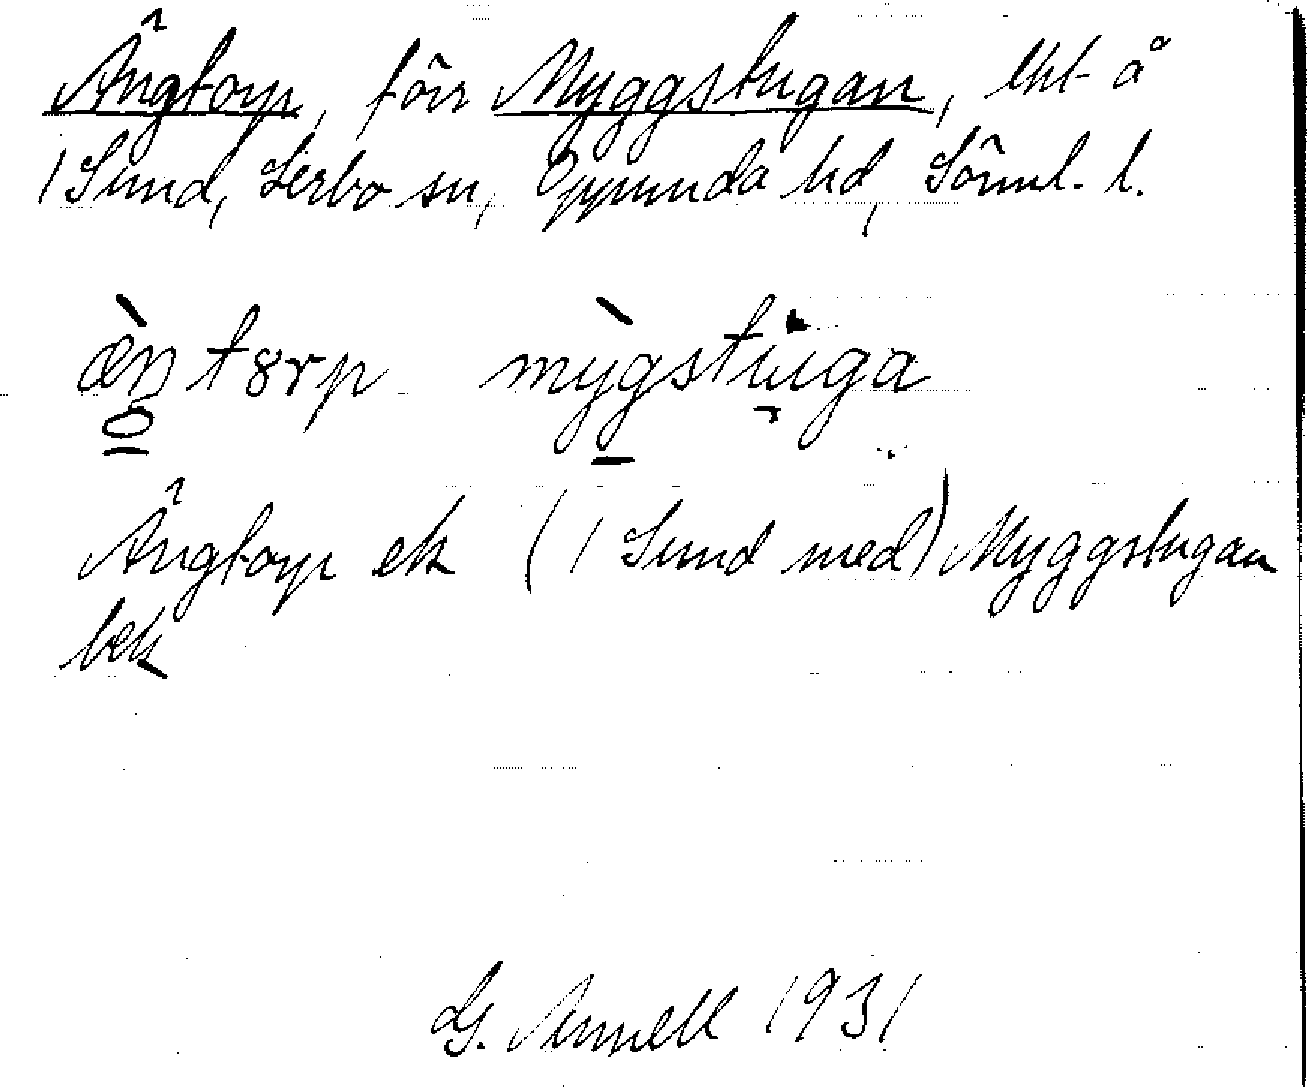 Ängtorp, förr Myggstugan, lht å
1 Sund, Lerbo sn, Oppunda hd, Söml. l.
æ̀ŋtȣrp mỳgstuga
Ängtorp ek (1 Sund med) Myggstugan
bek
G. Annell 1931